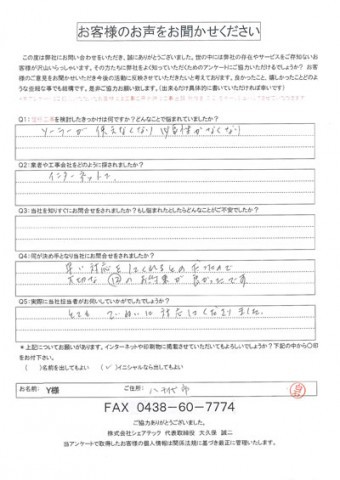 お客様のお声をお聞かせください
この度は弊社にお問い合わせをいただき、誠にありがとうございました。世の中には弊社の存在やサービスをご存知ないお
客様が沢山いらっしゃいます。その方たちに弊社をよく知っていただくためのアンケートにご協力いただけるでしょうか? お客
様のご意見をお聞かせいただき今後の活動に反映させていただきたいと考えております。良かったこと、嬉しかったことどの
ような些細な事でも結構です。是非ご協力お願い致します。(出来るだけ具体的に書いていただければ幸いです)
Q1:を検討したきっかけは何ですか?どんなことで悩まれていましたか?
ソーラーが使えなくなり
Q2:業者や工事会社をどのように探されましたか?
インターネットで
Q3:当社を知りすぐにお問合せをされましたか?もし悩まれたとしたらどんなことがご不安でしたか?
Q4:何が決め手となり当社にお問合せをされましたか?
早い対応をしてくれるとの
Q5:実際に当社担当者がお伺いしていかがでしたでしょうか?
とても ていねいに対応してくださいました。
*上記についてお願いがあります。インターネットや印刷物に掲載させていただいてもよろしいでしょうか?下記の中から〇印
をお付け下さい。
( )名前を出してもよい (✓)イニシャルなら出してもよい
お名前: Y様 ご住所:
FAX 0438-60-7774
ご協力ありがとうございました。
株式会社シェアテック 代表取締役 大久保 誠二
当アンケートで取得したお客様の個人情報は関係法規に基づき厳正に管理いたします。